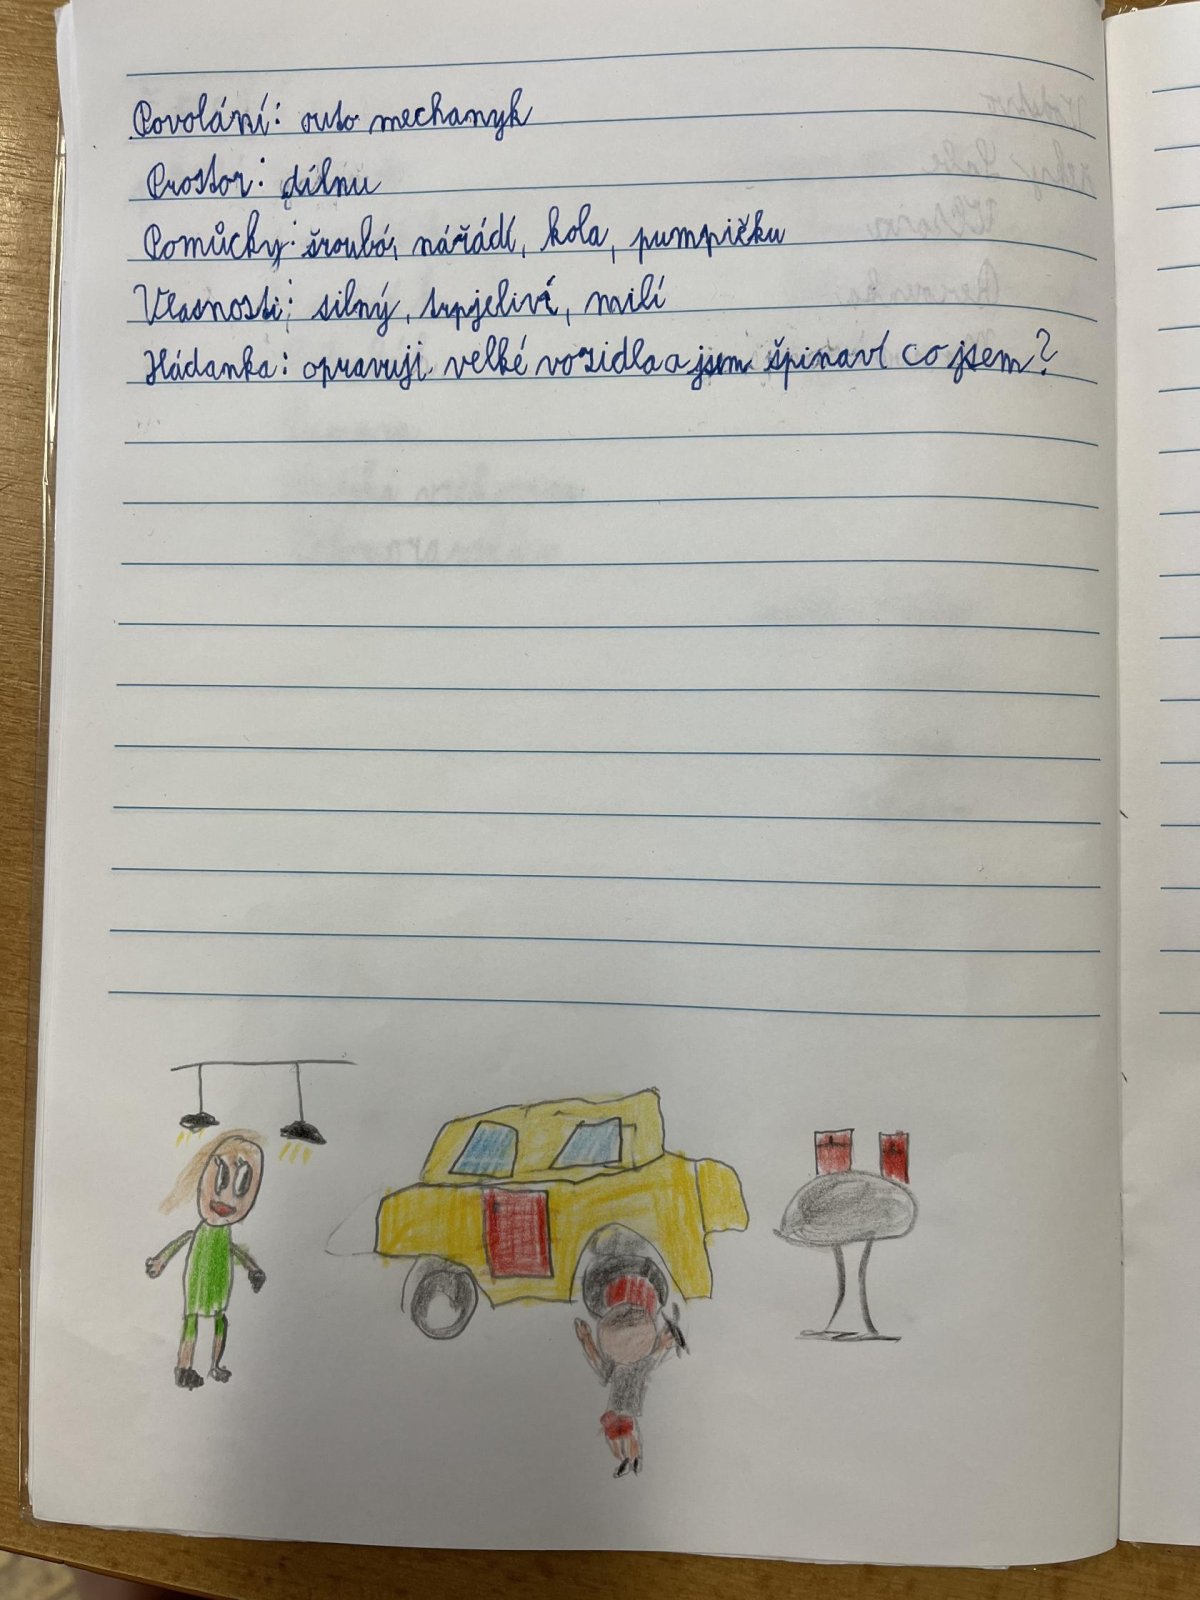 Povolání: auto mechanyk
Prostor: dílnu
Pomůcky: šroubó, nářádí, kola, pumpičku
Vlasnosti: silný, trpjeliví, milí
Hádanka: opravuji velké vozidla a jsem špinaví co jsem?